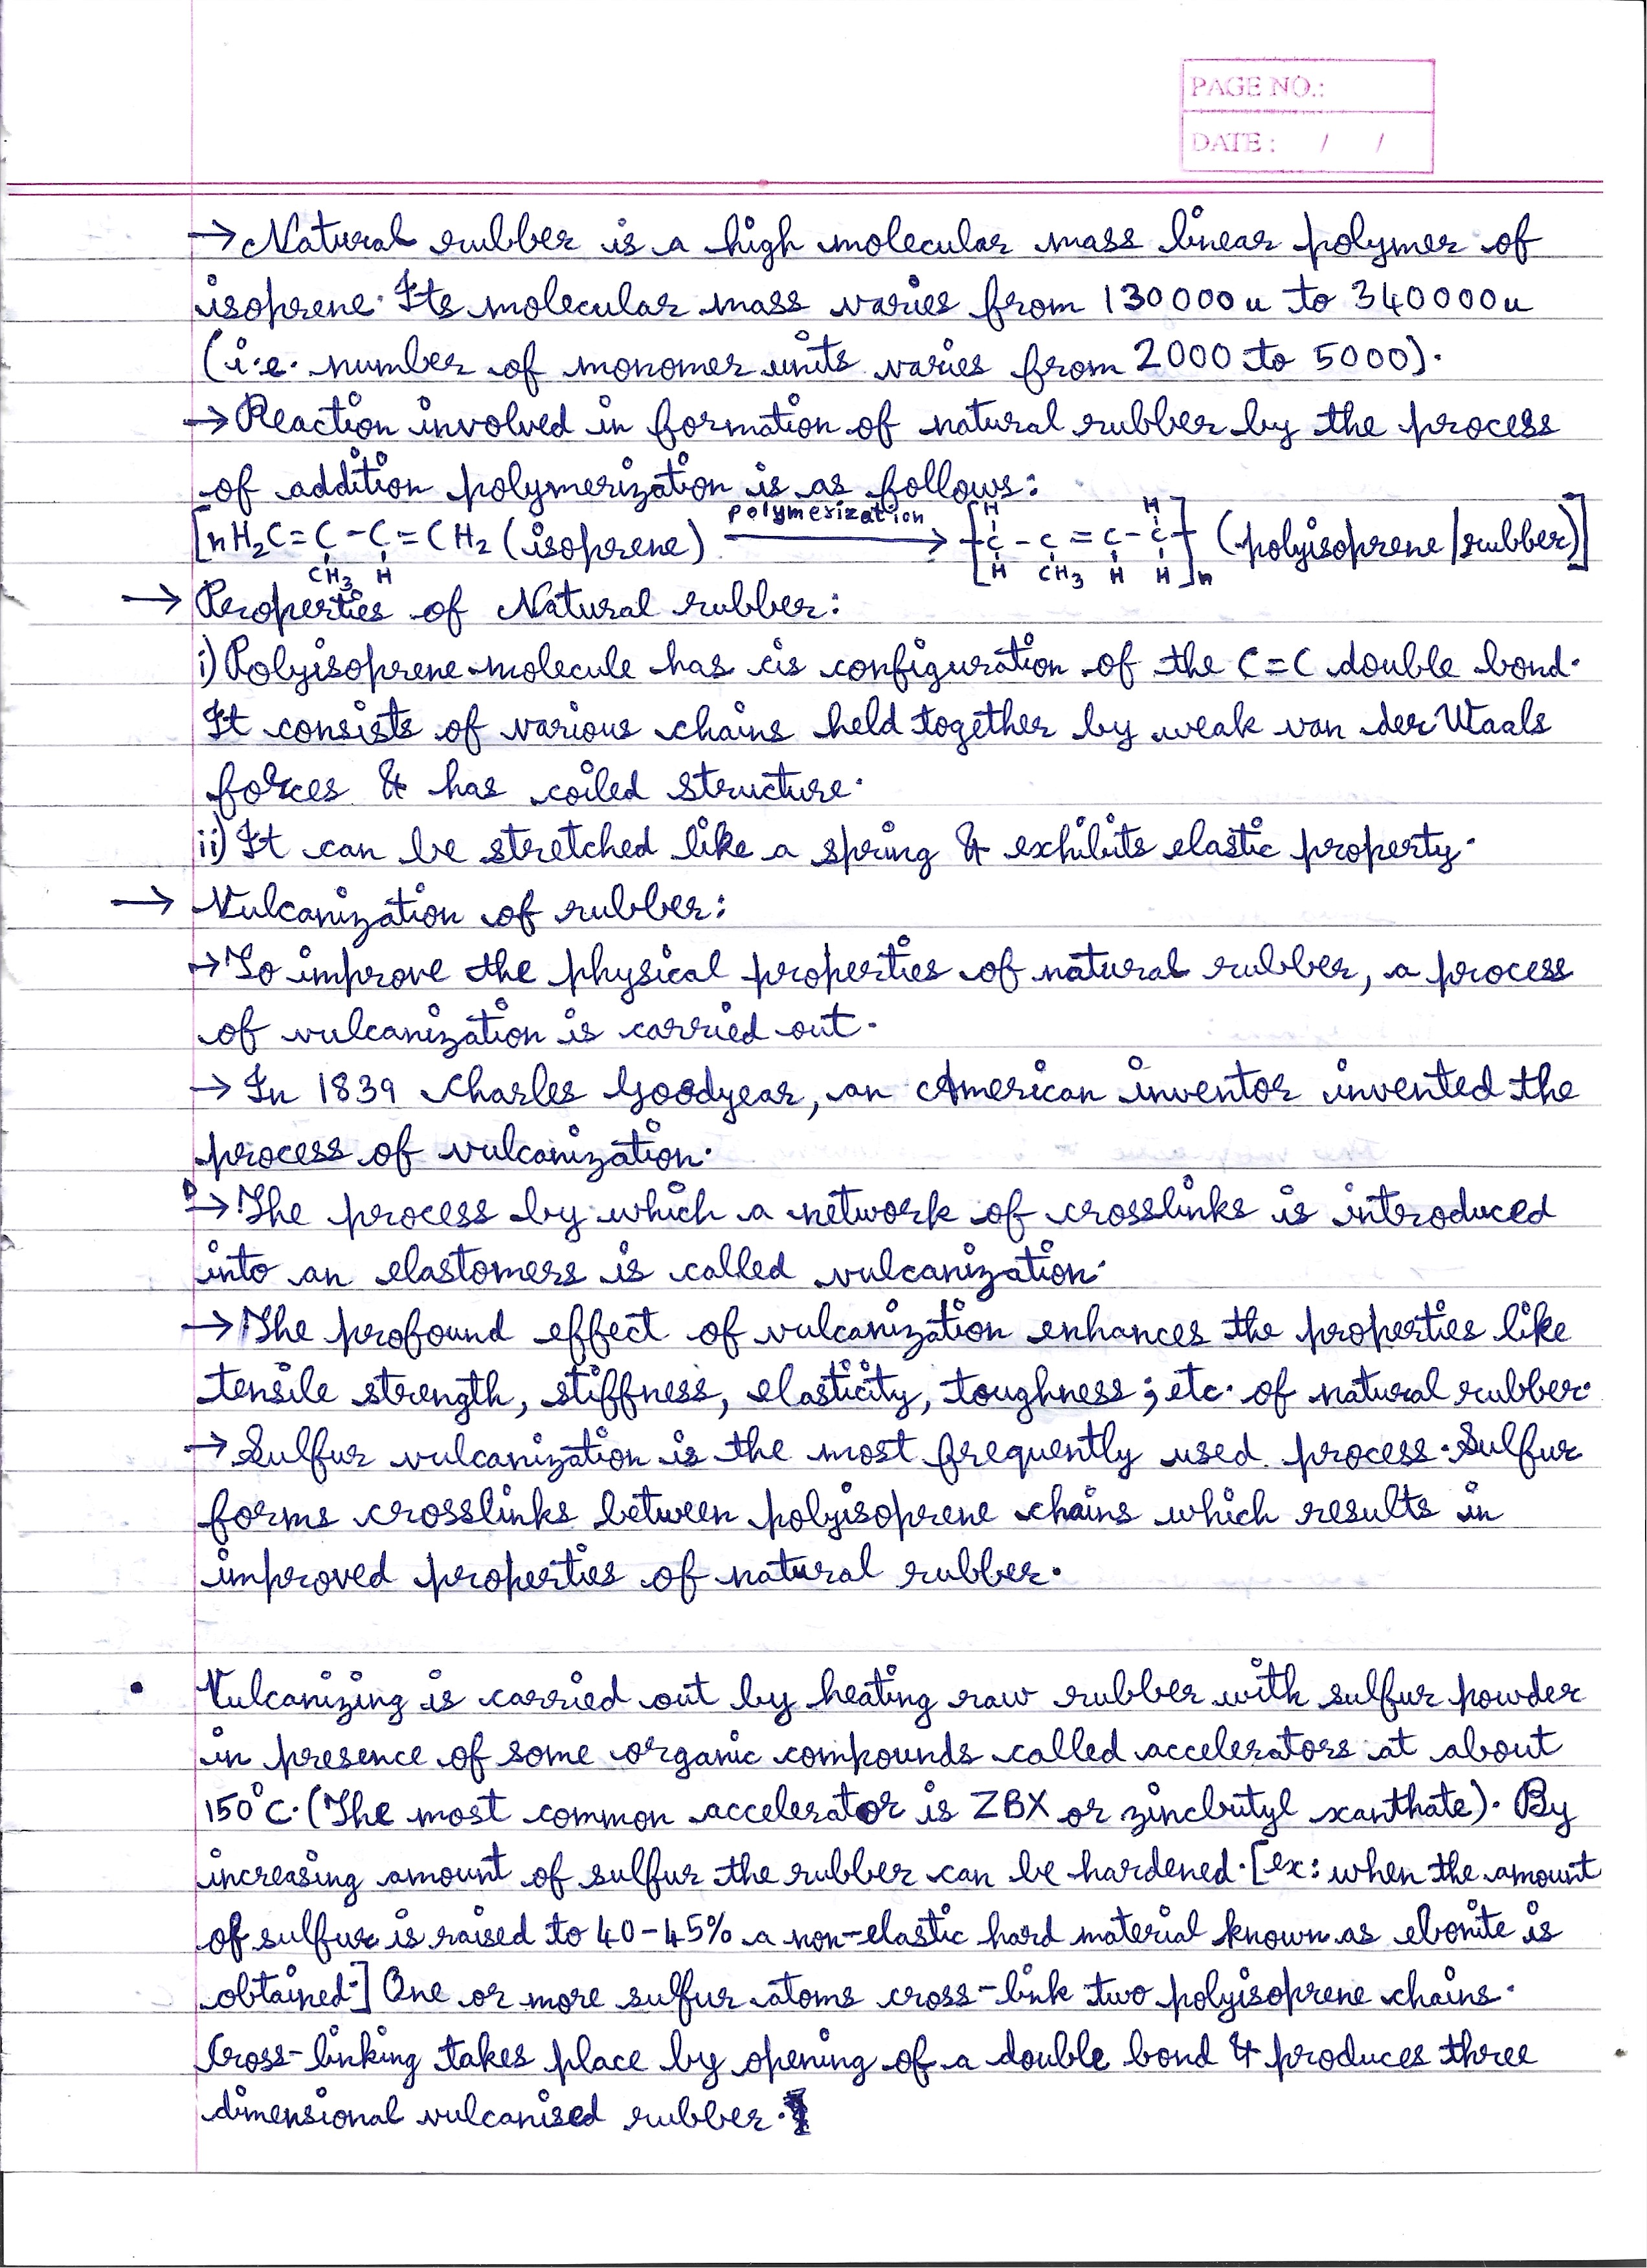 PAGE NO.:
DATE : / /
→ Natural rubber is a high molecular mass linear polymer of
isoprene. Its molecular mass varies from 130000u to 340000u
(i.e. number of monomer units varies from 2000 to 5000).
→ Reaction involved in formation of natural rubber by the process
of addition polymerization is as follows:
[nH₂C=C-C=CH₂ (isoprene) polymerization → [C-C=C-C]n (polyisoprene/rubber)]
CH₃ H H H CH₃ H H H
→ Properties of Natural rubber:
i) Polyisoprene molecule has cis configuration of the C=C double bond.
It consists of various chains held together by weak van der Waals
forces & has coiled structure.
ii) It can be stretched like a spring & exhibits elastic property.
→ Vulcanization of rubber:
→ To improve the physical properties of natural rubber, a process
of vulcanization is carried out.
→ In 1839 Charles Goodyear, an American inventor invented the
process of vulcanization.
D → The process by which a network of crosslinks is introduced
into an elastomers is called vulcanization.
→ The profound effect of vulcanization enhances the properties like
tensile strength, stiffness, elasticity, toughness; etc. of natural rubber.
→ Sulfur vulcanization is the most frequently used process. Sulfur
forms crosslinks between polyisoprene chains which results in
improved properties of natural rubber.
• Vulcanizing is carried out by heating raw rubber with sulfur powder
in presence of some organic compounds called accelerators at about
150°C. (The most common accelerator is ZBX or zincbutyl xanthate). By
increasing amount of sulfur the rubber can be hardened. [ex: when the amount
of sulfur is raised to 40-45% a non-elastic hard material known as ebonite is
obtained.] One or more sulfur atoms cross-link two polyisoprene chains.
Cross-linking takes place by opening of a double bond & produces three
dimensional vulcanised rubber.